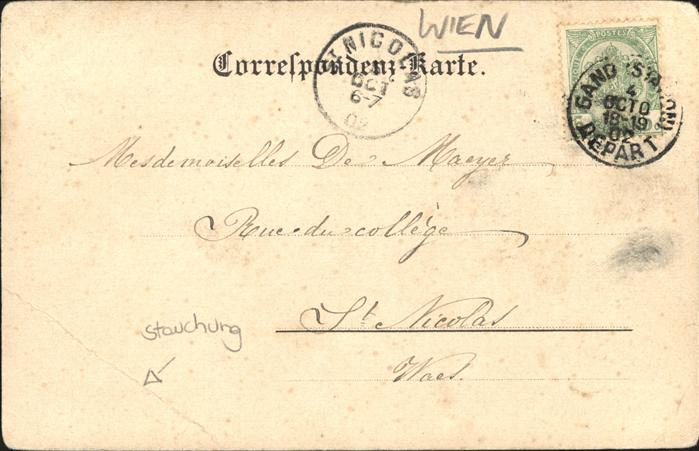 WIEN
Correspondenz-Karte.
ST NICOLAS
OCT
6-7
POSTES
GAND (STATION)
4
OCTO
18-19
02
DEPART
Mesdemoiselles De Maeyer
Rue du collége
St Nicolas
Waes.
stauchung